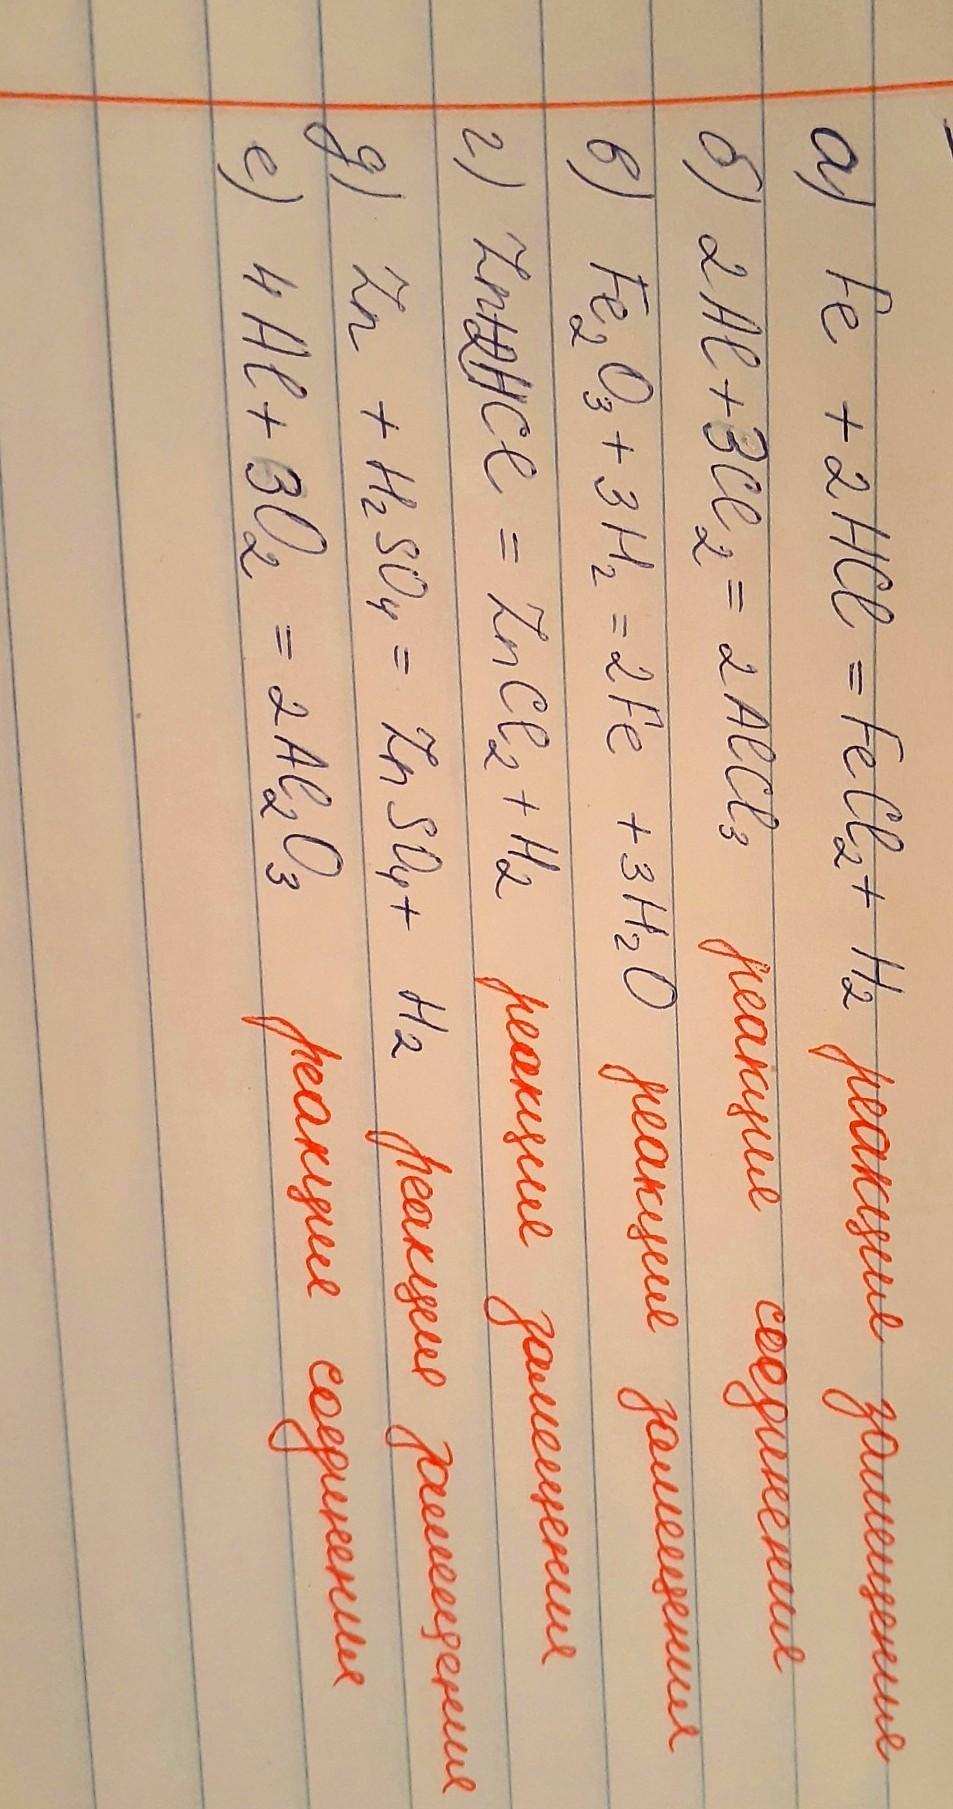 а) Fe + 2HCl = FeCl₂ + H₂ реакция замещения
б) 2Al + 3Cl₂ = 2AlCl₃ реакция соединения
в) Fe₂O₃ + 3H₂ = 2Fe + 3H₂O реакция замещения
г) Zn+2HCl = ZnCl₂ + H₂ реакция замещения
д) Zn + H₂SO₄ = ZnSO₄ + H₂ реакция замещения
е) 4Al + 3O₂ = 2Al₂O₃ реакция соединения